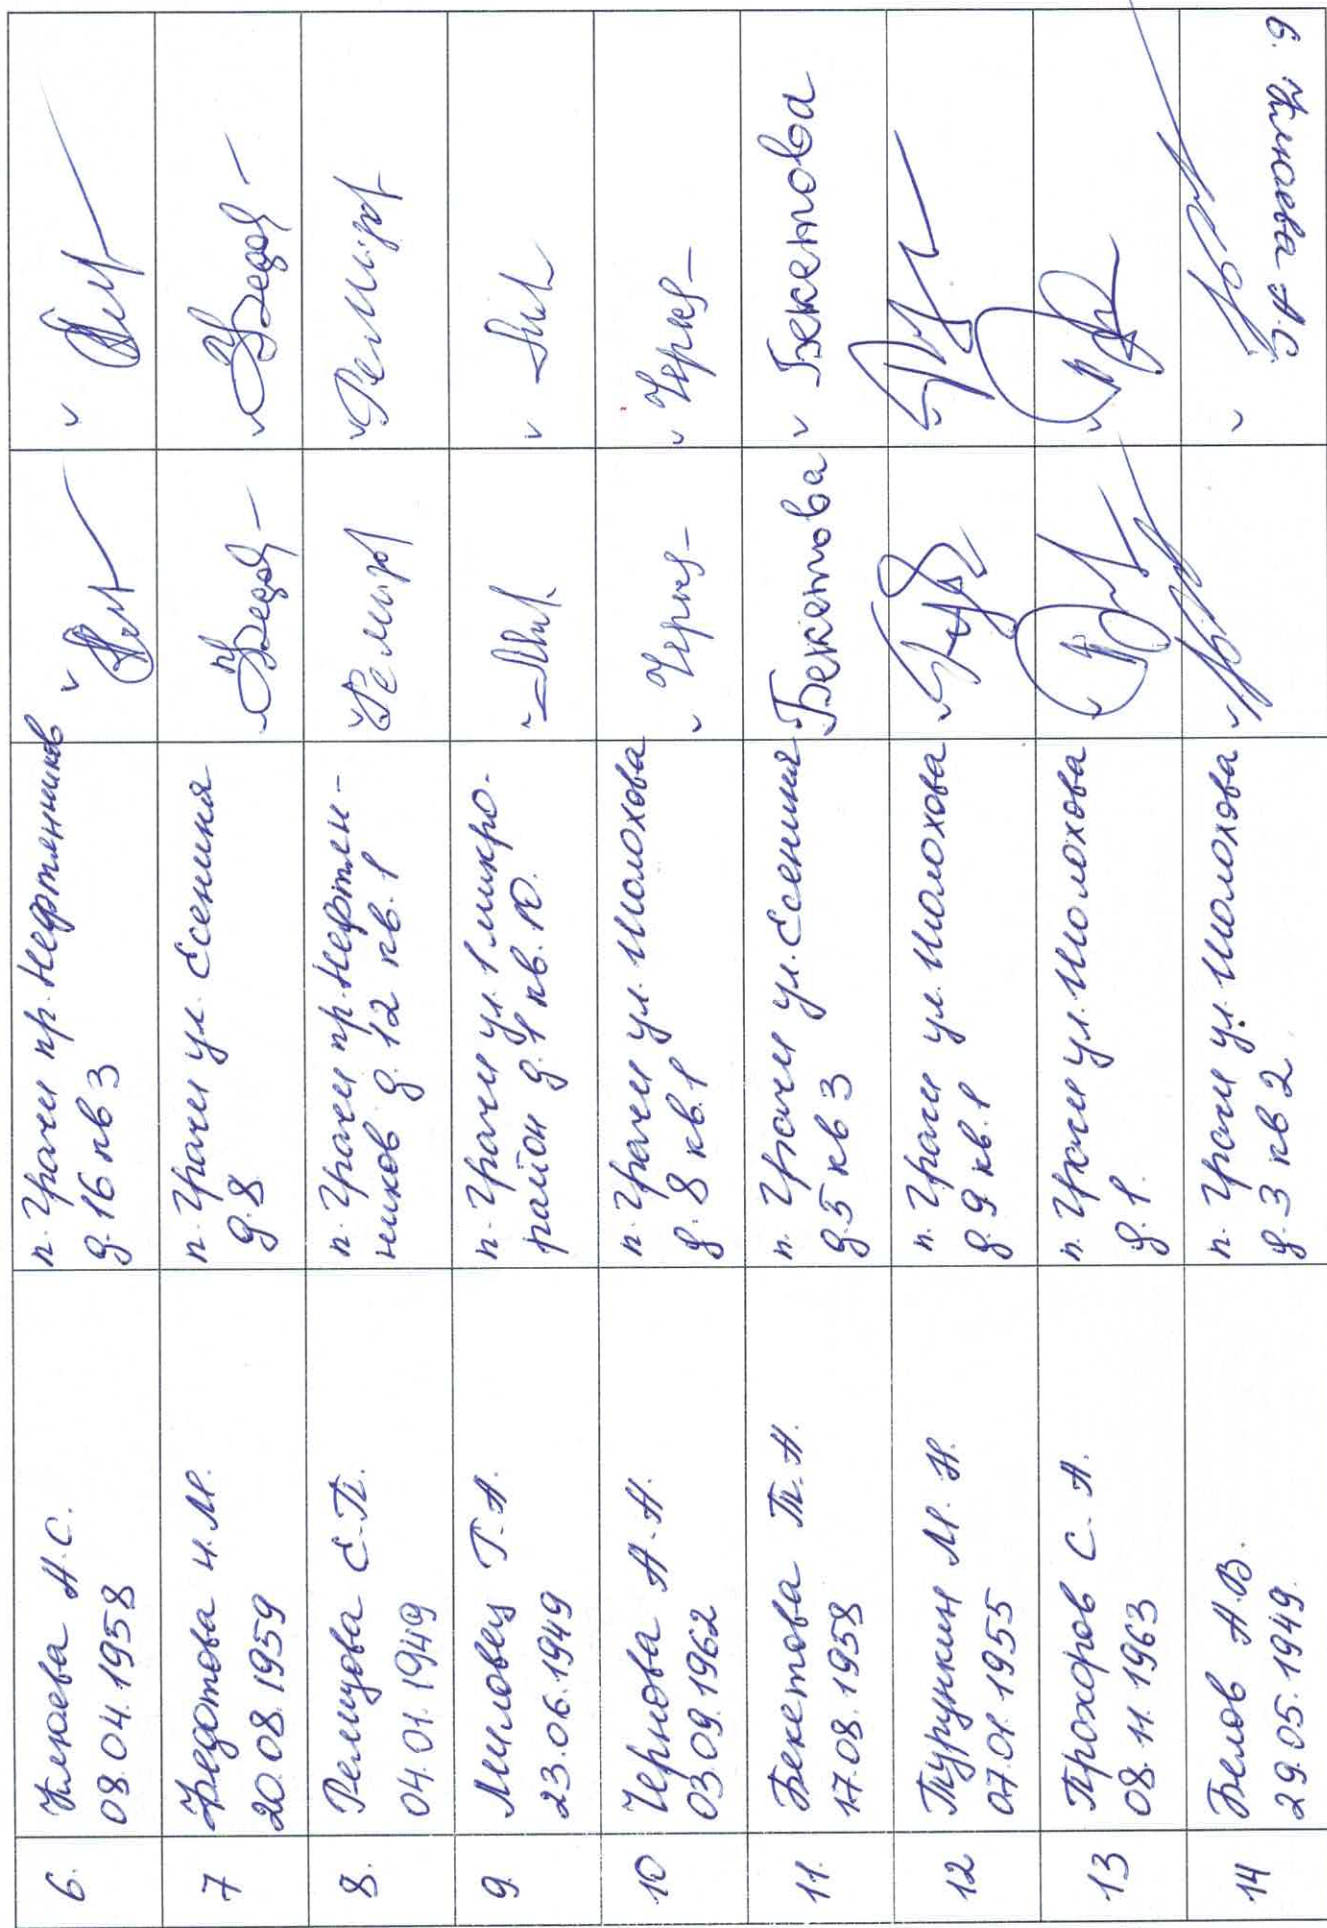 6.
Клюева А.С.
08.04.1958
п. Грачи пр. Нефтяников
д. 16 кв 3
7
Федотова Н.М.
20.08.1959
п. Грачи ул. Есенина
д. 8
8.
Ремцова Е.П.
04.01.1949
п. Грачи пр. Нефтян-
ников д. 12 кв. 1
Ремцов
9.
Миловец Т.А.
23.06.1949
п. Грачи ул. 1 микро-
район д. 1 кв. 10.
10
Чернова А.Н.
03.09.1962
п. Грачи ул. Шолохова
д. 8 кв. 1
11.
Бекетова Т.Н.
17.08.1958
п. Грачи ул. Есенина
д. 5 кв 3
Бекетова
Бекетова
12
Турункин М.Н.
07.01.1955
п. Грачи ул. Шолохова
д. 9 кв. 1
13
Прохоров С.А.
08.11.1963
п. Грачи ул. Шолохова
д. 1.
14
Белов А.В.
29.05.1949.
п. Грачи ул. Шолохова
д. 3 кв 2
6. Клюева А.С